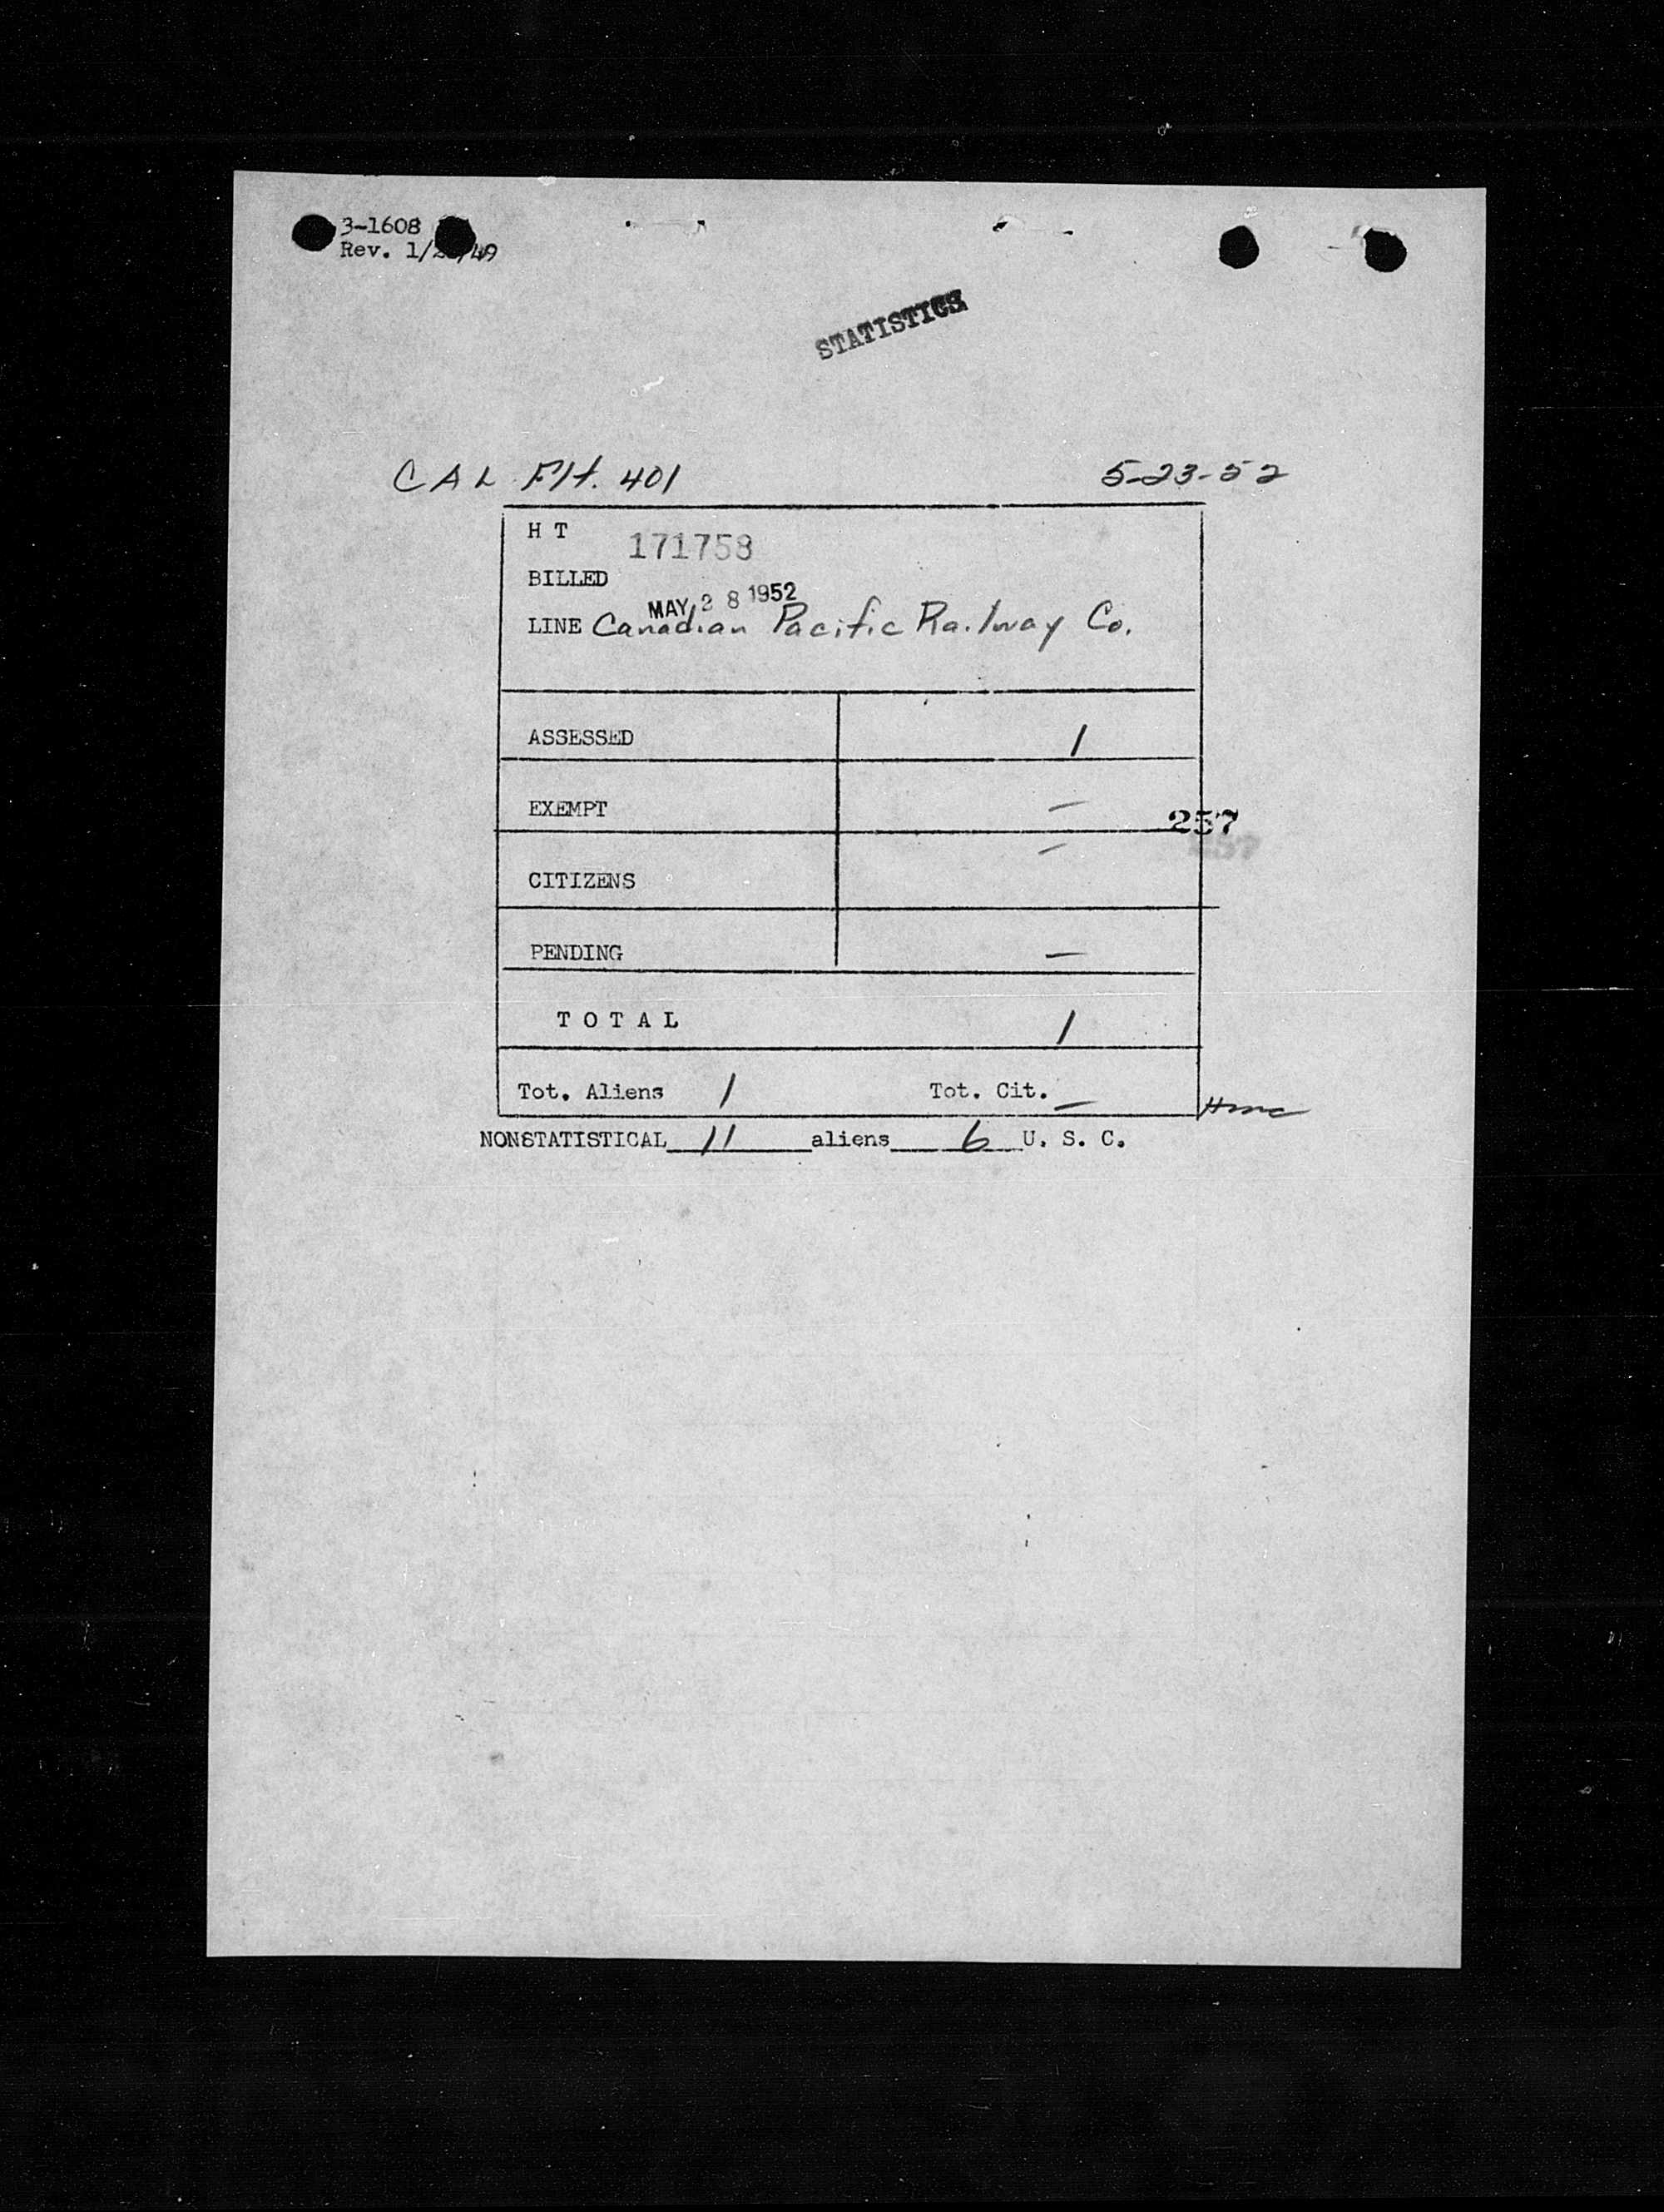 3-1608
Rev. 1/2 /49
STATISTICS
CAL Flt. 401 5-23-52
H T 171758
BILLED
MAY 28 1952
LINE Canadian Pacific Railway Co.
ASSESSED 1
EXEMPT —
257
257
CITIZENS —
PENDING —
T O T A L 1
Tot. Aliens 1 Tot. Cit. —
NONSTATISTICAL 11 aliens 6 U. S. C.